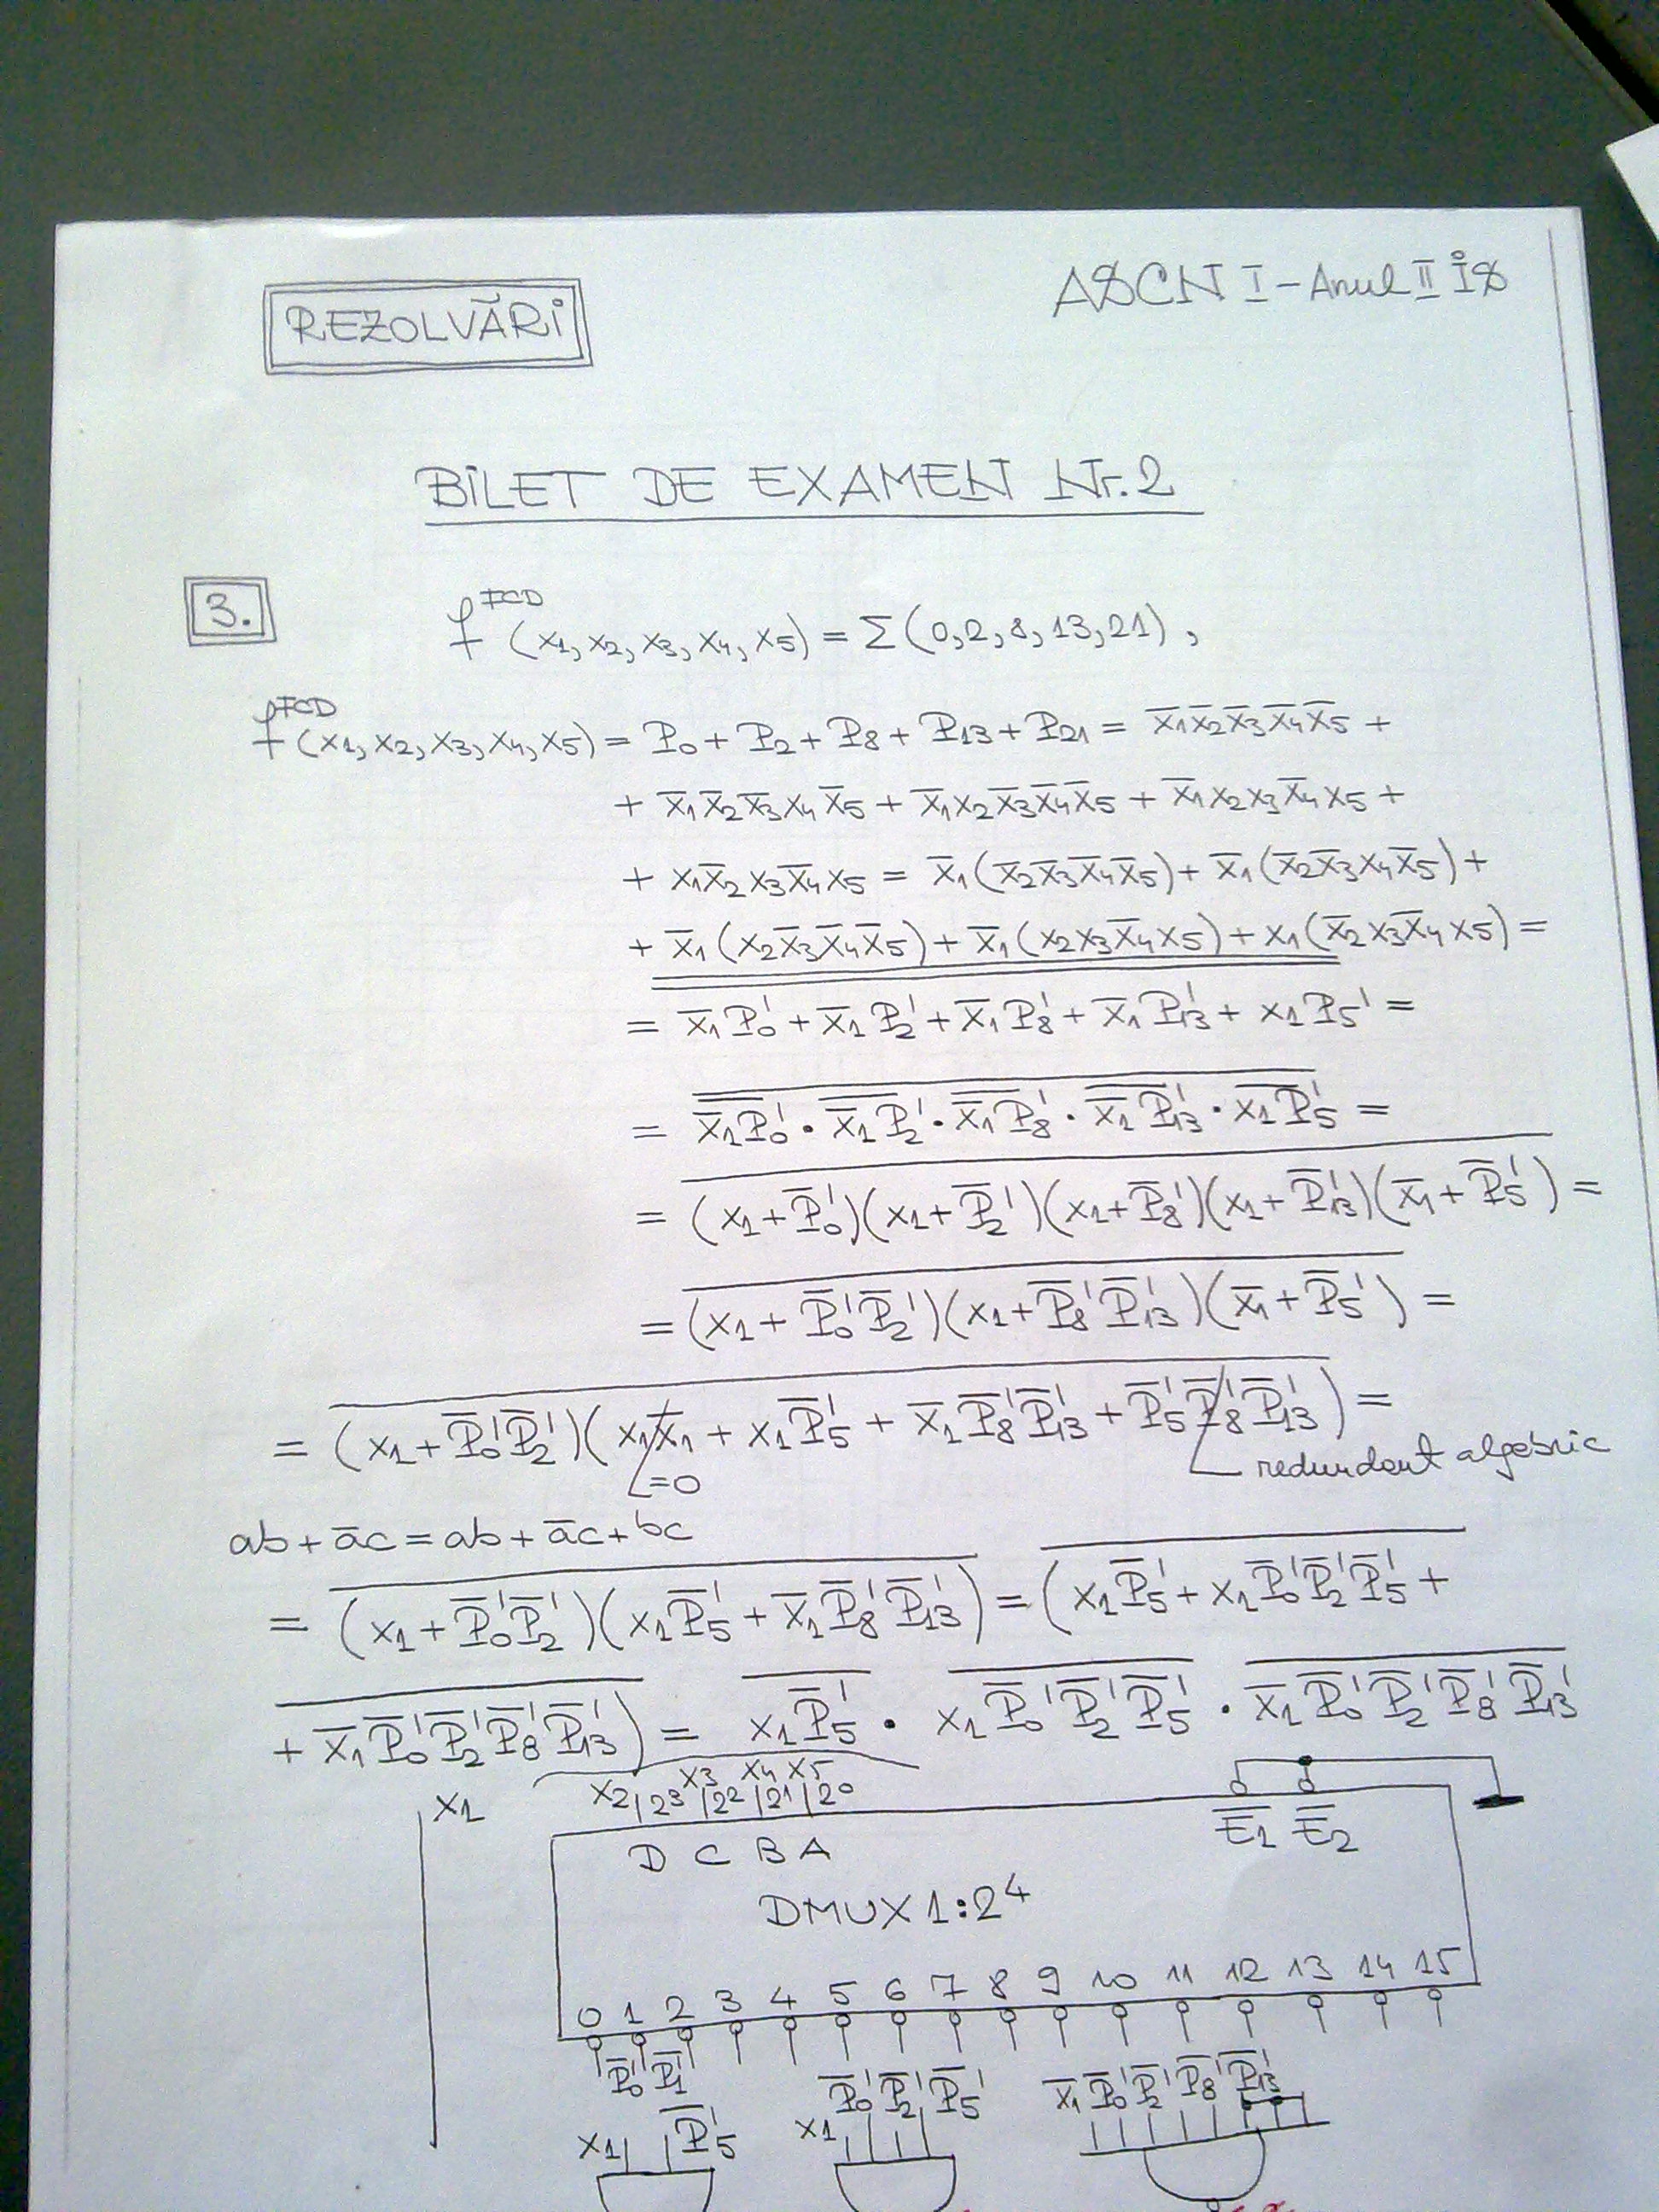 REZOLVĂRI
ASCN I - Anul II IS
BILET DE EXAMEN Nr. 2
3.
f^FCD (x₁, x₂, x₃, x₄, x₅) = Σ(0,2,8,13,21),
f^FCD (x₁, x₂, x₃, x₄, x₅) = P₀ + P₂ + P₈ + P₁₃ + P₂₁ = x̅₁x̅₂x̅₃x̅₄x̅₅ +
+ x̅₁x̅₂x̅₃x₄x̅₅ + x̅₁x₂x̅₃x̅₄x̅₅ + x̅₁x₂x₃x̅₄x₅ +
+ x₁x̅₂x₃x̅₄x₅ = x̅₁(x̅₂x̅₃x̅₄x̅₅) + x̅₁(x̅₂x̅₃x₄x̅₅) +
+ x̅₁(x₂x̅₃x̅₄x̅₅) + x̅₁(x₂x₃x̅₄x₅) + x₁(x̅₂x₃x̅₄x₅) =
= x̅₁P₀' + x̅₁P₂' + x̅₁P₈' + x̅₁P₁₃' + x₁P₅' =
= x̅₁P₀' · x̅₁P₂' · x̅₁P₈' · x̅₁P₁₃' · x₁P₅' =
= (x₁ + P̅₀')(x₁ + P̅₂')(x₁ + P̅₈')(x₁ + P̅₁₃')(x̅₁ + P̅₅') =
= (x₁ + P̅₀'P̅₂')(x₁ + P̅₈'P̅₁₃')(x̅₁ + P̅₅') =
= (x₁ + P̅₀'P̅₂')(x₁x̅₁ + x₁P̅₅' + x̅₁P̅₈'P̅₁₃' + P̅₅'P̅₈'P̅₁₃') =
=0
redundant algebric
ab + a̅c = ab + a̅c + bc
= (x₁ + P̅₀'P̅₂')(x₁P̅₅' + x̅₁P̅₈'P̅₁₃') = (x₁P̅₅' + x₁P̅₀'P̅₂'P̅₅' +
+ x̅₁P̅₀'P̅₂'P̅₈'P̅₁₃') = x₁P̅₅' · x₁P̅₀'P̅₂'P̅₅' · x̅₁P̅₀'P̅₂'P̅₈'P̅₁₃'
x₁
x₂ x₃ x₄ x₅
2³ 2² 2¹ 2⁰
D C B A
E̅₁ E̅₂
DMUX 1:2⁴
0 1 2 3 4 5 6 7 8 9 10 11 12 13 14 15
P̅₀' P̅₁'
P̅₀' P̅₂' P̅₅'
x̅₁ P̅₀' P̅₂' P̅₈' P̅₁₃'
x₁ P̅₅'
x₁